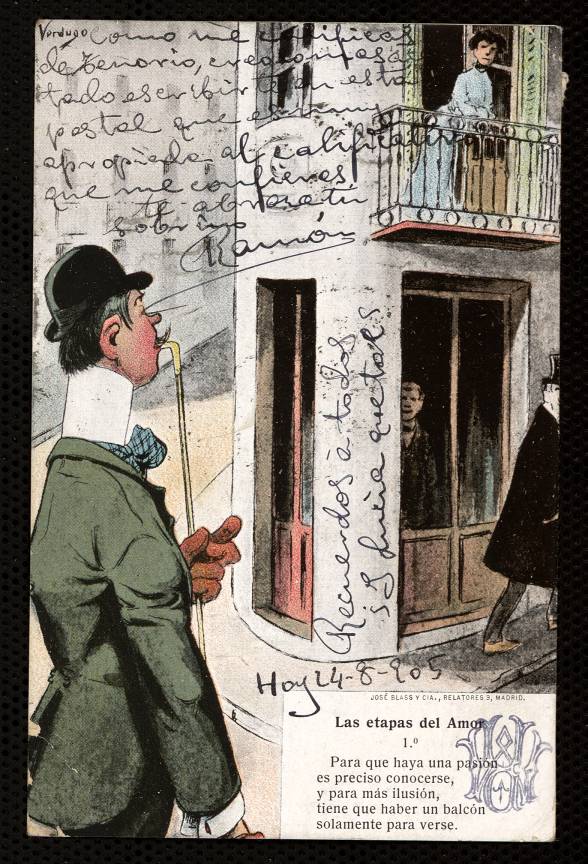 Verdugo
Como me calificas
de Tenorio, creo no has es
tado escribirte en esta
postal que es muy
apropiada al calificativo
que me confieres
te abraza tu
sobrino
Ramón
Recuerdos à todos
Hoy 24-8-905
JOSÉ BLASS Y CIA., RELATORES 3, MADRID.
Las etapas del Amor
1.º
Para que haya una pasión
es preciso conocerse,
y para más ilusión,
tiene que haber un balcón
solamente para verse.